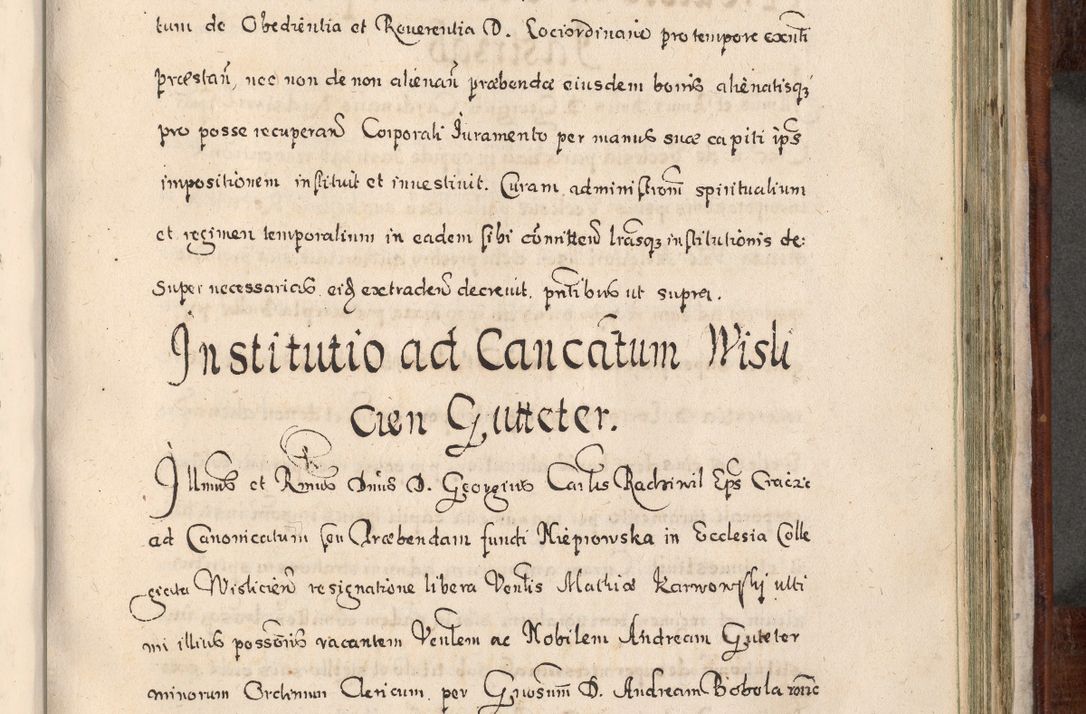 tum de Obedientia et Reuerentia D. Lociordinario pro tempore exñti
præstañ, nec non de non alienañ præbendæ eiusdem bonis alienatisqȝ
pro posse recuperanđ Corporali Iuramento per manus suæ capiti ip̃s
impositionem instituit et inuestiuit. Curam administrõm spiritualium
et regimen temporalium in eadem sibi com̃itteñ lr̃asqȝ institutionis de:
super necessarias extradeñ decreuit. pñtibus ut supra.
Institutio ad Cancãtum Wisli
cien Gutteter.
Illmus et Rmus Dñus D. Georgius Carlis Radziwil Ep̃s Cracoc
ad Canonicatum seu Præbendam fundi Niepiowska in Ecclesia Colle
giata Wislicien̄ resignatione libera Venlis Mathiæ Karwowskj ulti
mi illius possoris vacantem Venlem ac Nobilem Andream Guteter
minorum Ordinum Clericum per Gnosum D. Andream Bobola